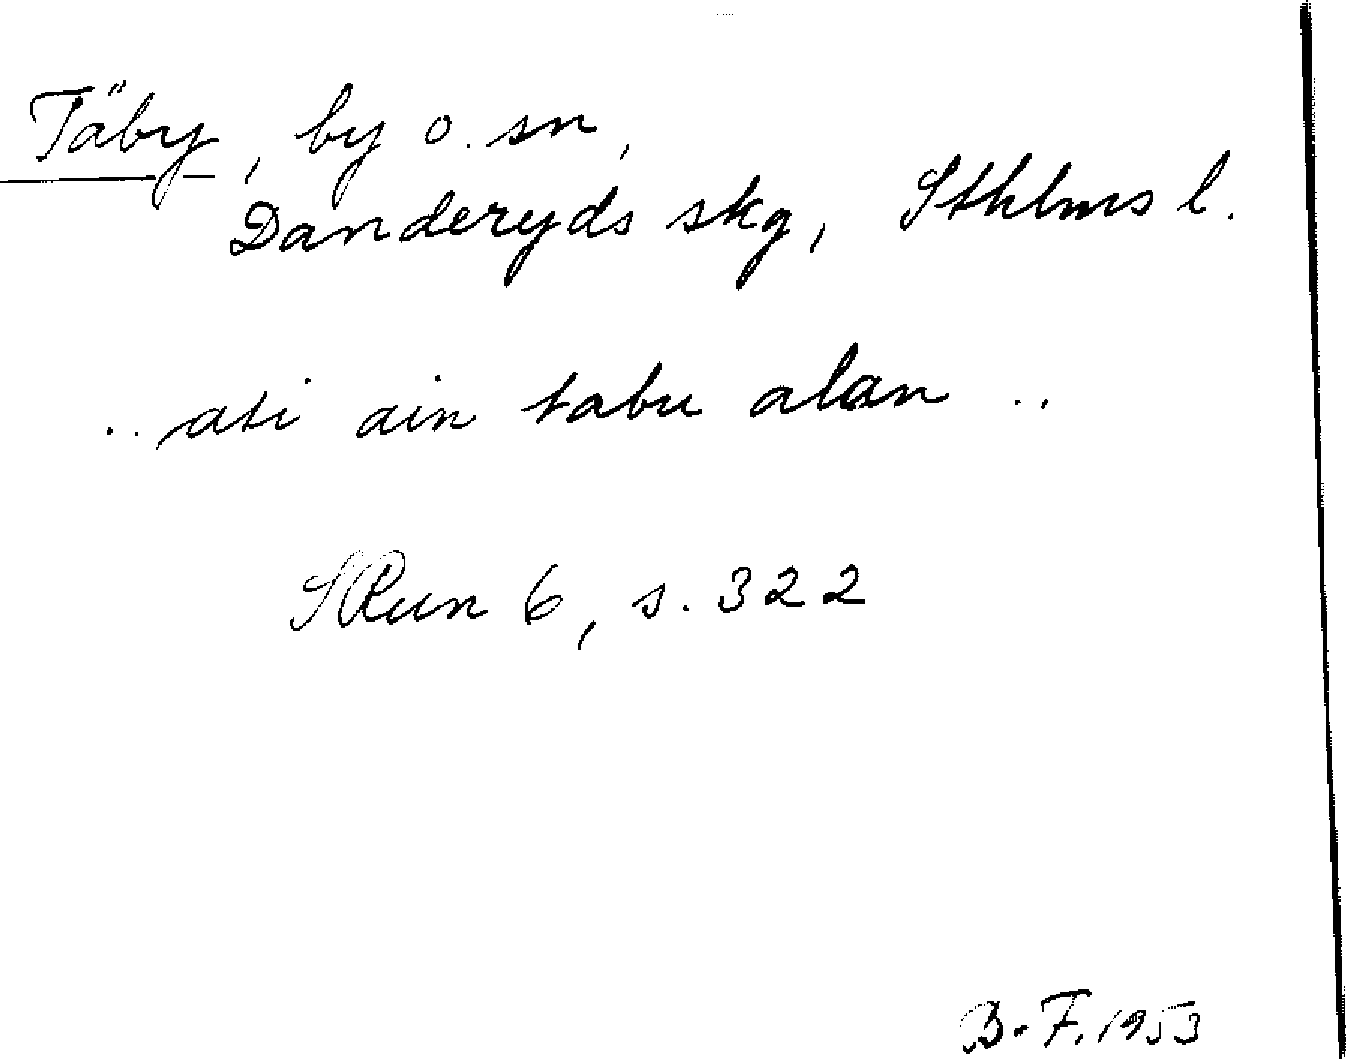 Täby, by o. sn,
Danderyds skg, Sthlms l.
.. ati ain tabu alan ..
SRun 6, s. 322
B.F. 1953